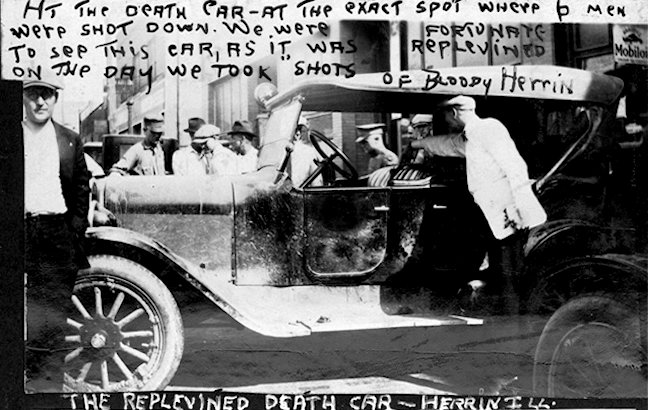 AT THE DEATH CAR-AT THE EXACT SPOT WHERE 6 MEN
WERE SHOT DOWN. WE WERE FORTUNATE
TO SEE THIS CAR, AS IT WAS REPLEVINED
ON THE DAY WE TOOK "SHOTS OF BLOODY HERRIN
Mobiloil
THE REPLEVINED DEATH CAR — HERRIN ILL.